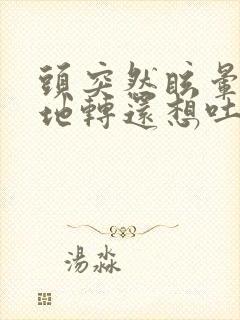 頭突然眩暈
地轉還想吐
湯淼